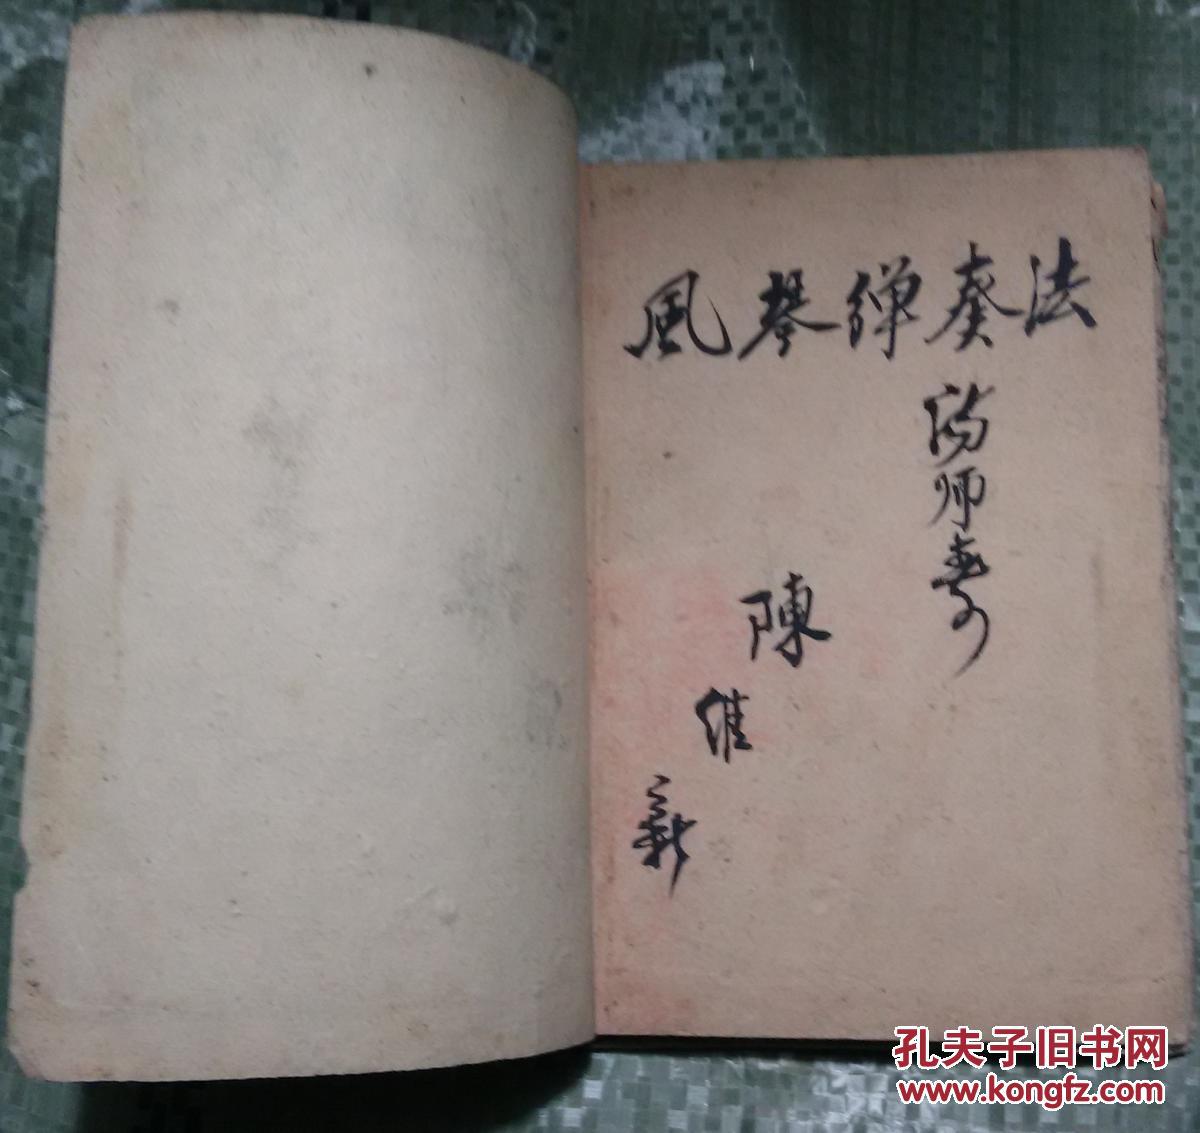 風琴弹奏法
汤师寿
陳
维
新
孔夫子旧书网
www.kongfz.com